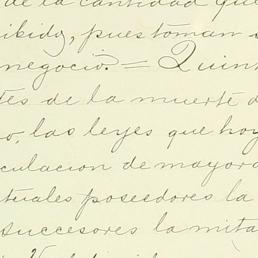 de la cantidad que
ibido, pues toman
negocio. = Quin
tes de la muerte d
o, las leyes que hoy
culacion de mayora
tuales poseedores la
succesores la mita